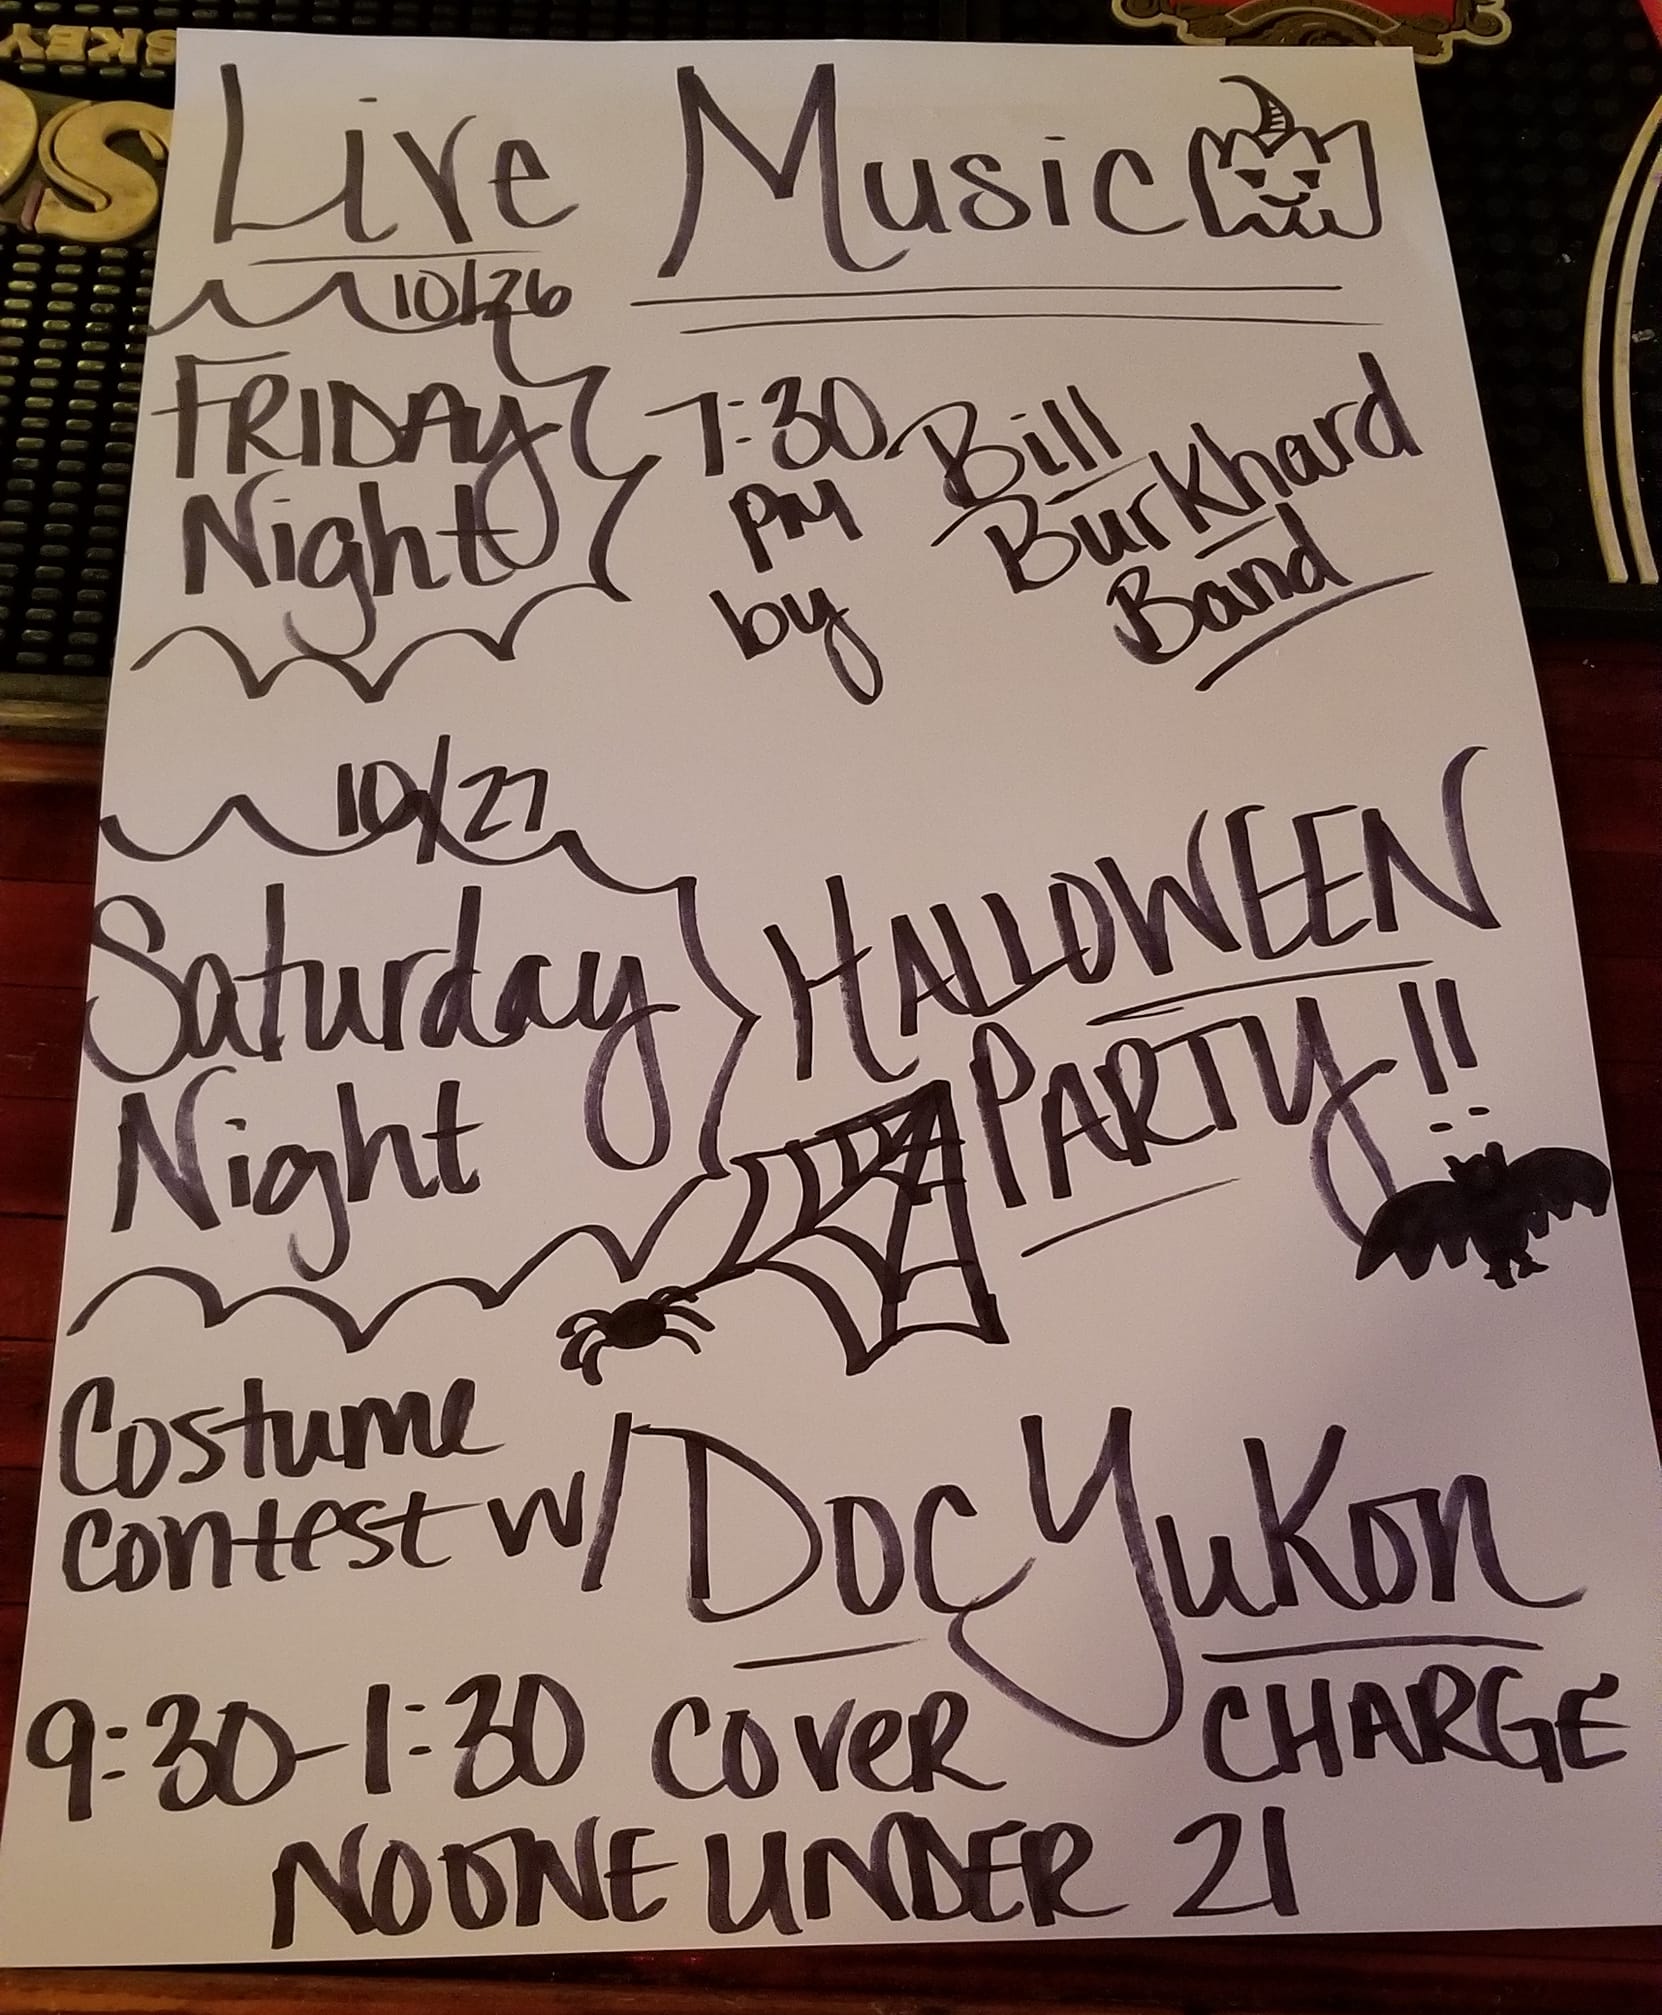 SKEY
OS
Live Music
10/26
FRIDAY
Night
7:30
PM
by
Bill
Burkhard
Band
10/27
Saturday
Night
HALLOWEEN
PARTY!!
Costume
Contest w/ Doc Yukon
9:30-1:30 COVER CHARGE
NO ONE UNDER 21